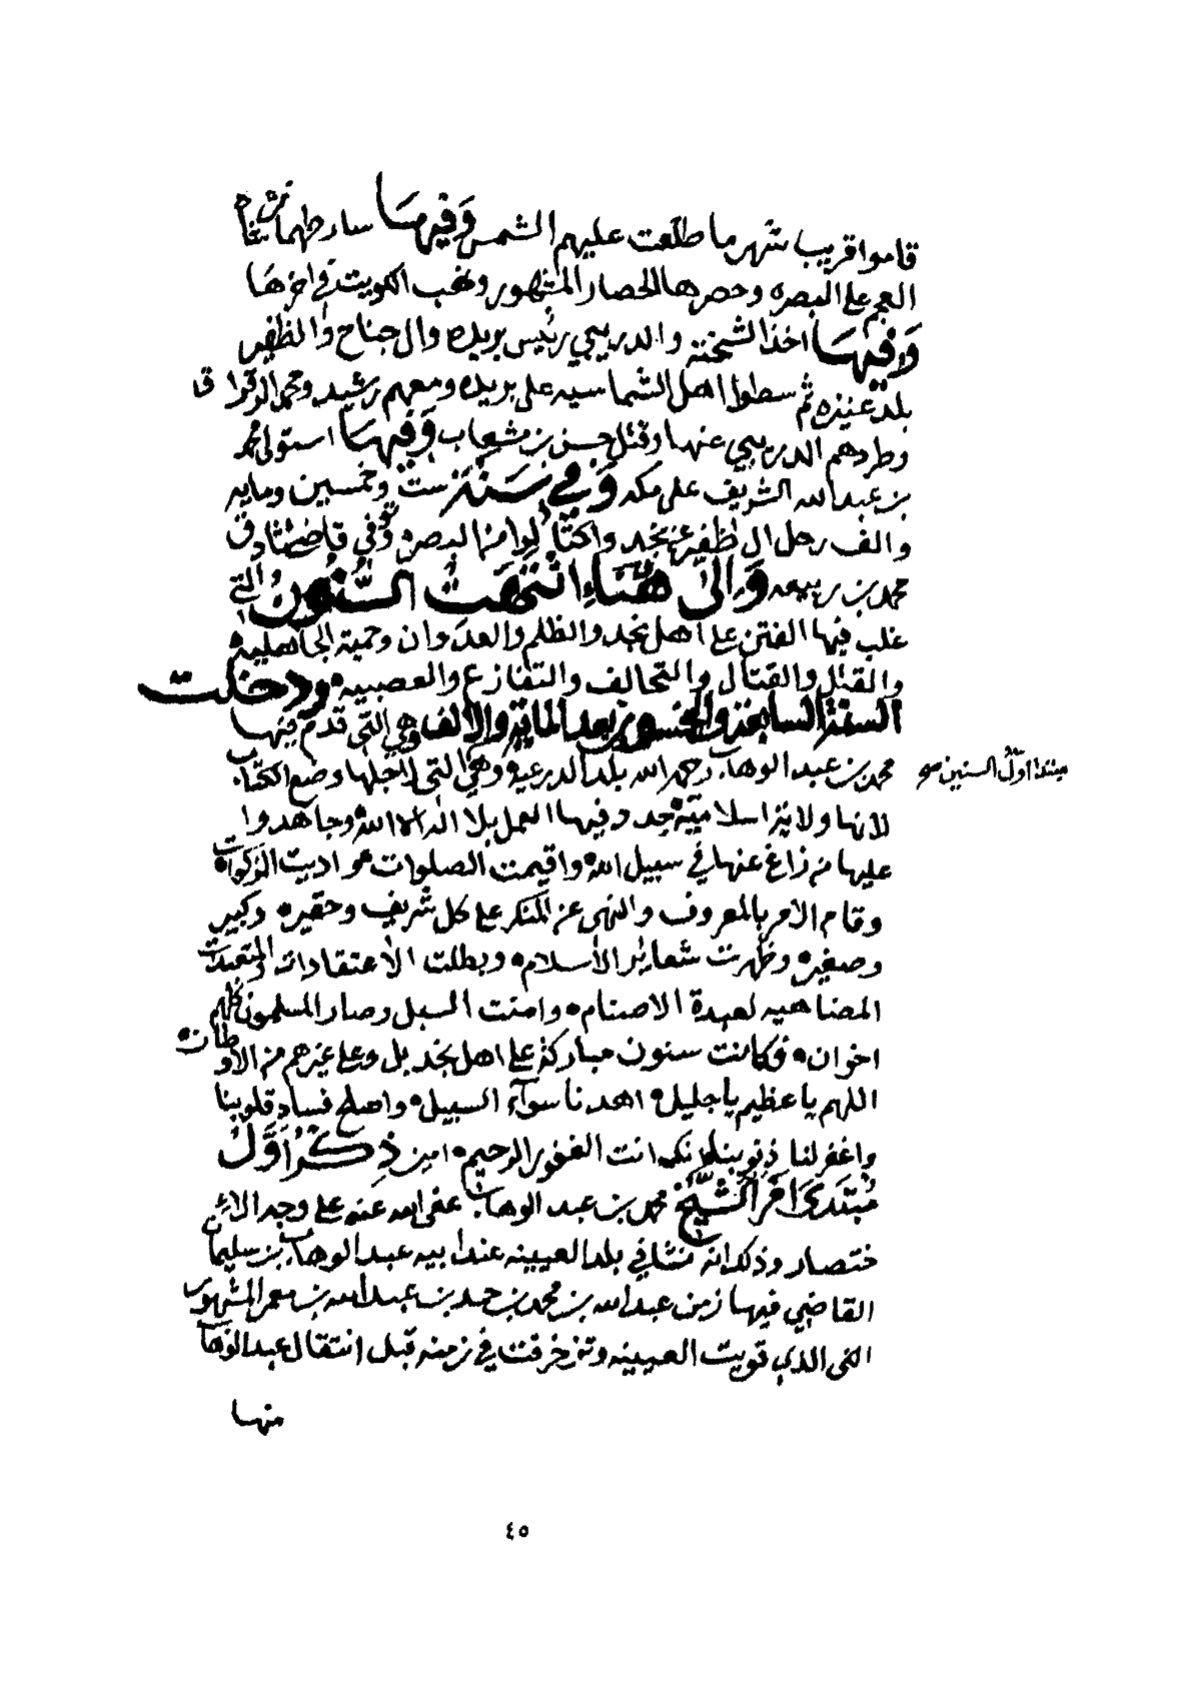 قاموا قريب شهر ما طلعت عليهم الشمس وَفيهَا سار طهماز شاه
العجم على البصره وحصرها الحصار المشهور ونهب الكويت في اخرها
وَفيهَا اخذ الشختة والدريبي رئيس بريده وال جناح والظفير
بلد عنيزه ثم سطوا اهل الشماسيه على بريده ومعهم رشيد ومحمد الرقراق
وطردهم الدريبي عنها وقتل حسن بن مشعاب وَفيهَا استولى محمد
بن عبدالله الشريف على مكه وَفي سَنَة ست وخمسين ومايه
والف رحل ال ظفير عن نجد واكتالوا من البصره وتوفي قاضي ثادق
محمد بن ربيعه وَإلى هُنَاءِ انتَهَت السُّنُونُ والتي
غلب فيها الفتن على اهل نجد والظلم والعدوان وحمية الجاهليه
والقتل والقتال والتحالف والتنازع والعصبيه ودخلت
السنة السابعة والخمسون بعد المائة والالف وهي التي قدم فيها
محمد بن عبد الوهاب رحمه الله بلد الدرعيه وهي التي لاجلها وضع الكتاب
مبتدا اول السنين
لانها ولاية اسلامية جدد فيها العمل بلا اله الا الله وجاهدوا
عليها من زاغ عنها في سبيل الله واقيمت الصلوات واديت الزكوات
وقام الامر بالمعروف والنهى عن المنكر على كل شريف وحقير وكبير
وصغير وظهرت شعائر الاسلام وبطلت الاعتقادات والتعبدات
المضاهيه لعبدة الاصنام وامنت السبل وصار المسلمون كلهم
اخوان فكانت سنون مباركة على اهل نجد بل وعلى غيرهم من الاوطان
اللهم يا عظيم يا جليل اهدنا سوآء السبيل واصلح فساد قلوبنا
واغفر لنا ذنوبنا انك انت الغفور الرحيم امين ذِكْرُ أوَّلُ
مُبتَدَى اَمْرِ الشَّيْخُ محمد بن عبد الوهاب عفى الله عنه على وجه الاء
ختصار وذلك انه نشا في بلد العيينه عند ابيه عبد الوهاب بن سليمان
القاضي فيها زمن عبدالله بن محمد بن حمد بن عبدالله بن معمر المشهور
الذي قويت العيينه وتزخرفت في زمنه قبل انتقال عبدالوهاب
منها
٤٥